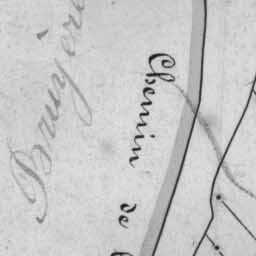 Bruyère
Chemin de